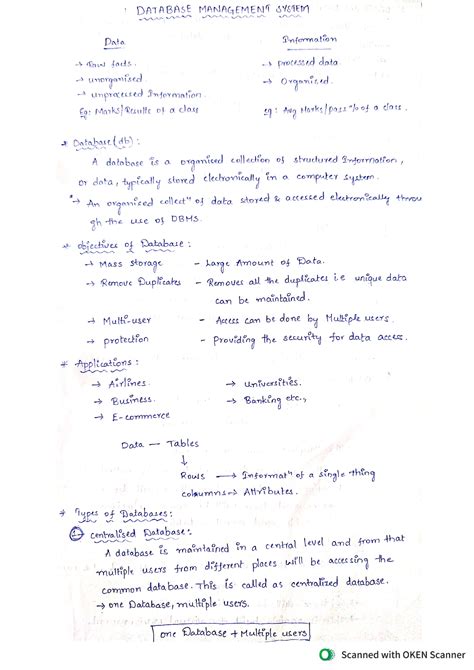 DATABASE MANAGEMENT SYSTEM
Data Information
→ raw facts. → processed data
→ unorganised. → Organised.
→ unprocessed Information.
Eg: Marks/Results of a class eg: Avg Marks/pass % of a class.
* Database (db):
A database is a organised collection of structured Information,
or data, typically stored electronically in a computer system.
* → An organised collectⁿ of data stored & accessed electronically throu
gh the use of DBMS.
* objectives of Database:
→ Mass storage - Large Amount of Data.
→ Remove Duplicates - Removes all the duplicates i.e unique data
can be maintained.
→ Multi-user - Access can be done by Multiple users.
→ protection - Providing the security for data access.
* Applications:
→ Airlines. → Universities.
→ Business. → Banking etc.,
→ E-commerce
Data — Tables
↓
Rows → Informatⁿ of a single thing
coloumns → Attributes.
* Types of Databases:
1 centralised Database:
A database is maintained in a central level and from that
multiple users from different places will be accessing the
common database. This is called as centralized database.
→ one Database, multiple users.
one Database + Multiple users
Scanned with OKEN Scanner